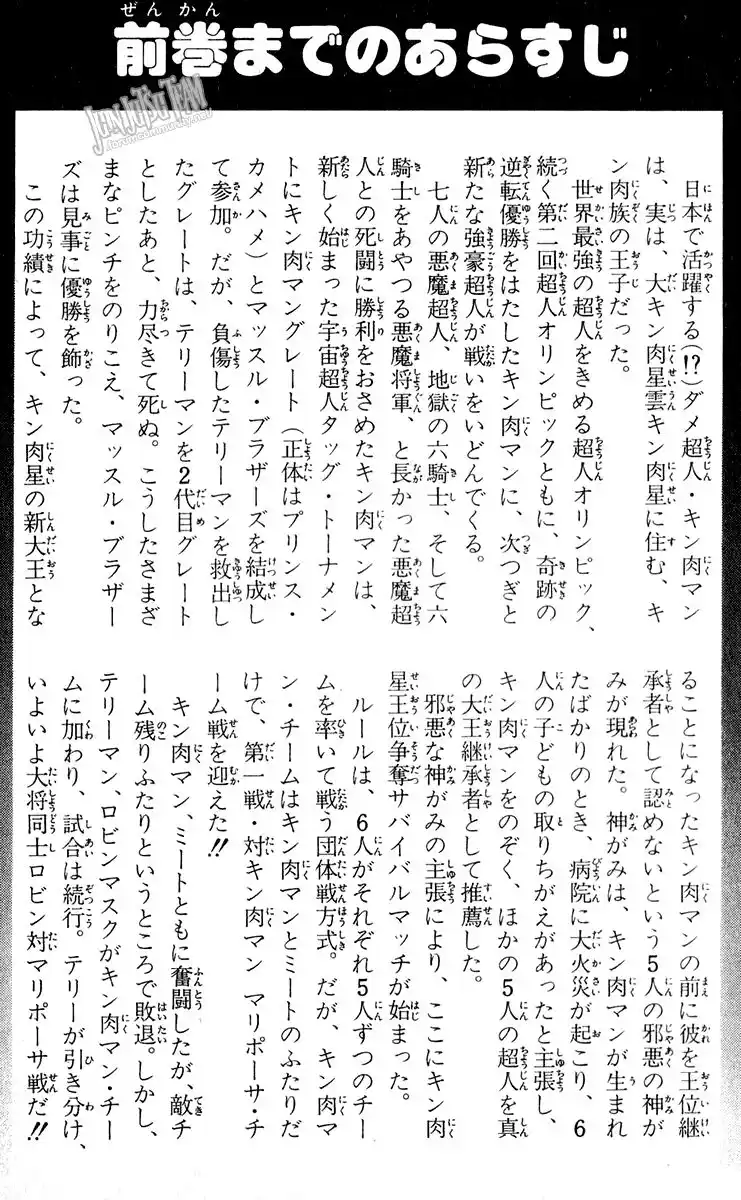 前巻までのあらすじ
JENJETSU TEAM
.forumcommunity.net/
日本で活躍する(!?)ダメ超人・キン肉マン
は、実は、大キン肉星雲キン肉星に住む、キ
ン肉族の王子だった。
世界最強の超人をきめる超人オリンピック、
続く第二回超人オリンピックともに、奇跡の
逆転優勝をはたしたキン肉マンに、次つぎと
新たな強豪超人が戦いをいどんでくる。
七人の悪魔超人、地獄の六騎士、そして六
騎士をあやつる悪魔将軍、と長かった悪魔超
人との死闘に勝利をおさめたキン肉マンは、
新しく始まった宇宙超人タッグ・トーナメン
トにキン肉マングレート(正体はプリンス・
カメハメ)とマッスル・ブラザーズを結成し
て参加。だが、負傷したテリーマンを救出し
たグレートは、テリーマンを2代目グレート
としたあと、力尽きて死ぬ。こうしたさまざ
まなピンチをのりこえ、マッスル・ブラザー
ズは見事に優勝を飾った。
この功績によって、キン肉星の新大王とな
ることになったキン肉マンの前に彼を王位継
承者として認めないという5人の邪悪の神が
みが現れた。神がみは、キン肉マンが生まれ
たばかりのとき、病院に大火災が起こり、6
人の子どもの取りちがえがあったと主張し、
キン肉マンをのぞく、ほかの5人の超人を真
の大王継承者として推薦した。
邪悪な神がみの主張により、ここにキン肉
星王位争奪サバイバルマッチが始まった。
ルールは、6人がそれぞれ5人ずつのチー
ムを率いて戦う団体戦方式。だが、キン肉マ
ン・チームはキン肉マンとミートのふたりだ
けで、第一戦・対キン肉マン マリポーサ・チ
ーム戦を迎えた!!
キン肉マン、ミートともに奮闘したが、敵チ
ーム残りふたりというところで敗退。しかし、
テリーマン、ロビンマスクがキン肉マン・チー
ムに加わり、試合は続行。テリーが引き分け、
いよいよ大将同士ロビン対マリポーサ戦だ!!